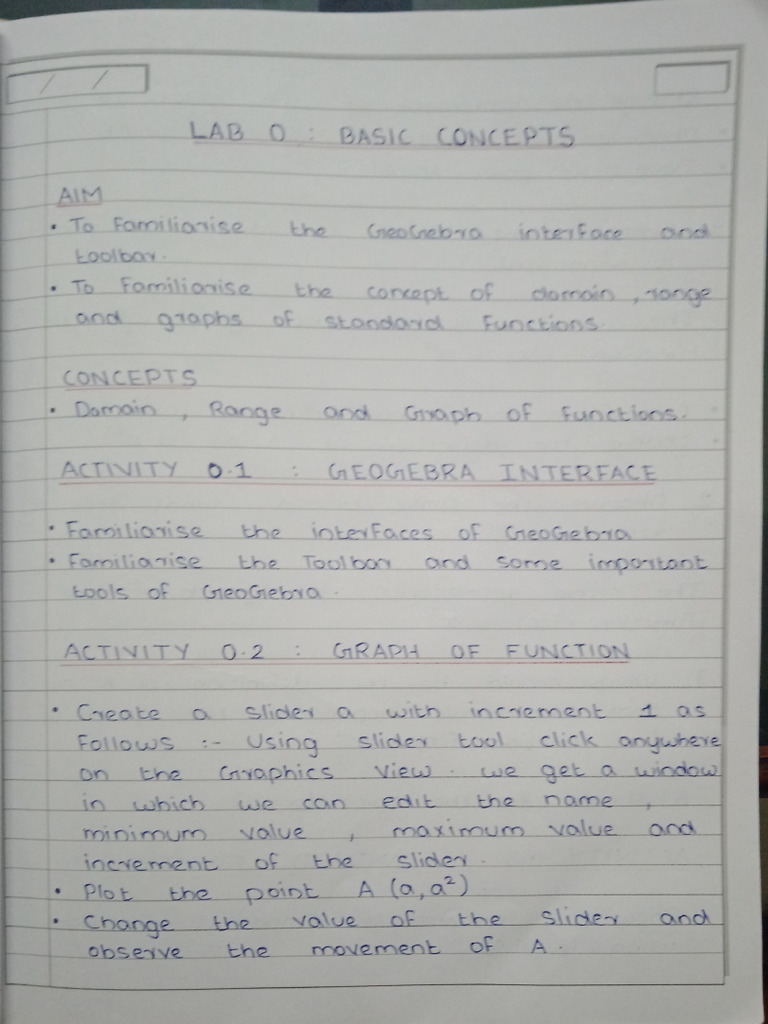 LAB 0 : BASIC CONCEPTS
AIM
• To Familiarise the GeoGebra interface and
toolbar.
• To Familiarise the concept of domain, range
and graphs of standard Functions.
CONCEPTS
• Domain, Range and Graph of Functions.
ACTIVITY 0.1 : GEOGEBRA INTERFACE
• Familiarise the interfaces of GeoGebra
• Familiarise the Toolbar and some important
tools of GeoGebra.
ACTIVITY 0.2 : GRAPH OF FUNCTION
• Create a slider a with increment 1 as
Follows :- Using slider tool click anywhere
on the Graphics View. we get a window
in which we can edit the name,
minimum value, maximum value and
increment of the slider.
• Plot the point A (a, a²)
• Change the value of the slider and
observe the movement of A.